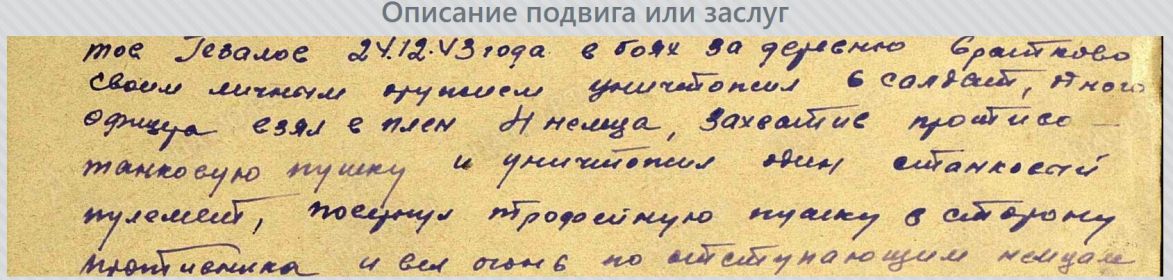 Описание подвига или заслуг
тов Гевалов 24.12.43 года в боях за деревню Братково
своим личным оружием уничтожил 6 солдат, одного
офицера взял в плен 4 немца, захватив противо –
танковую пушку и уничтожил один станковый
пулемент, повернул трофейную пушку в сторону
противника и вел огонь по отступающим немцам